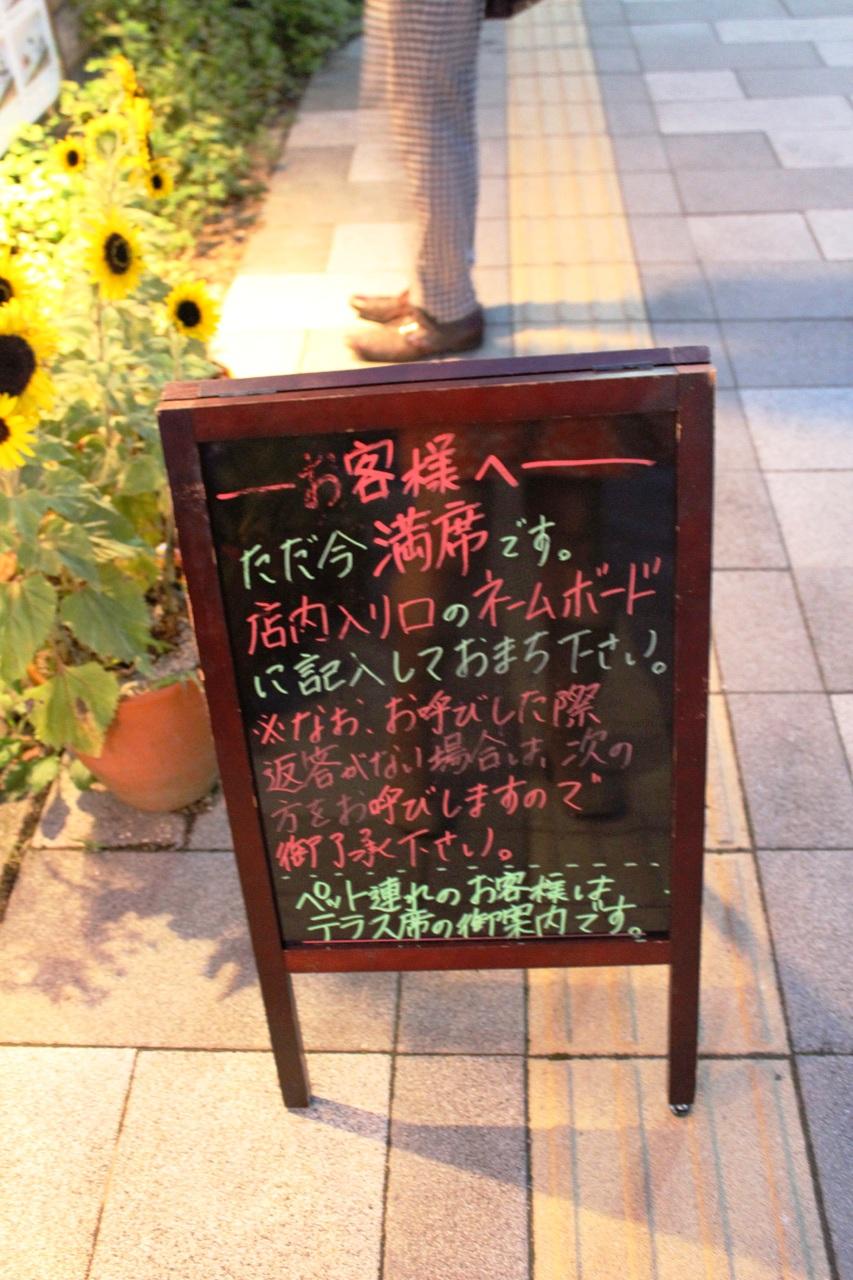 お客様へ
ただ今満席です。
店内入り口のネームボード
に記入しておまち下さい。
※なお、お呼びした際
返答がない場合は、次の
方をお呼びしますので
御了承下さい。
ペット連れのお客様は
テラス席の御案内です。